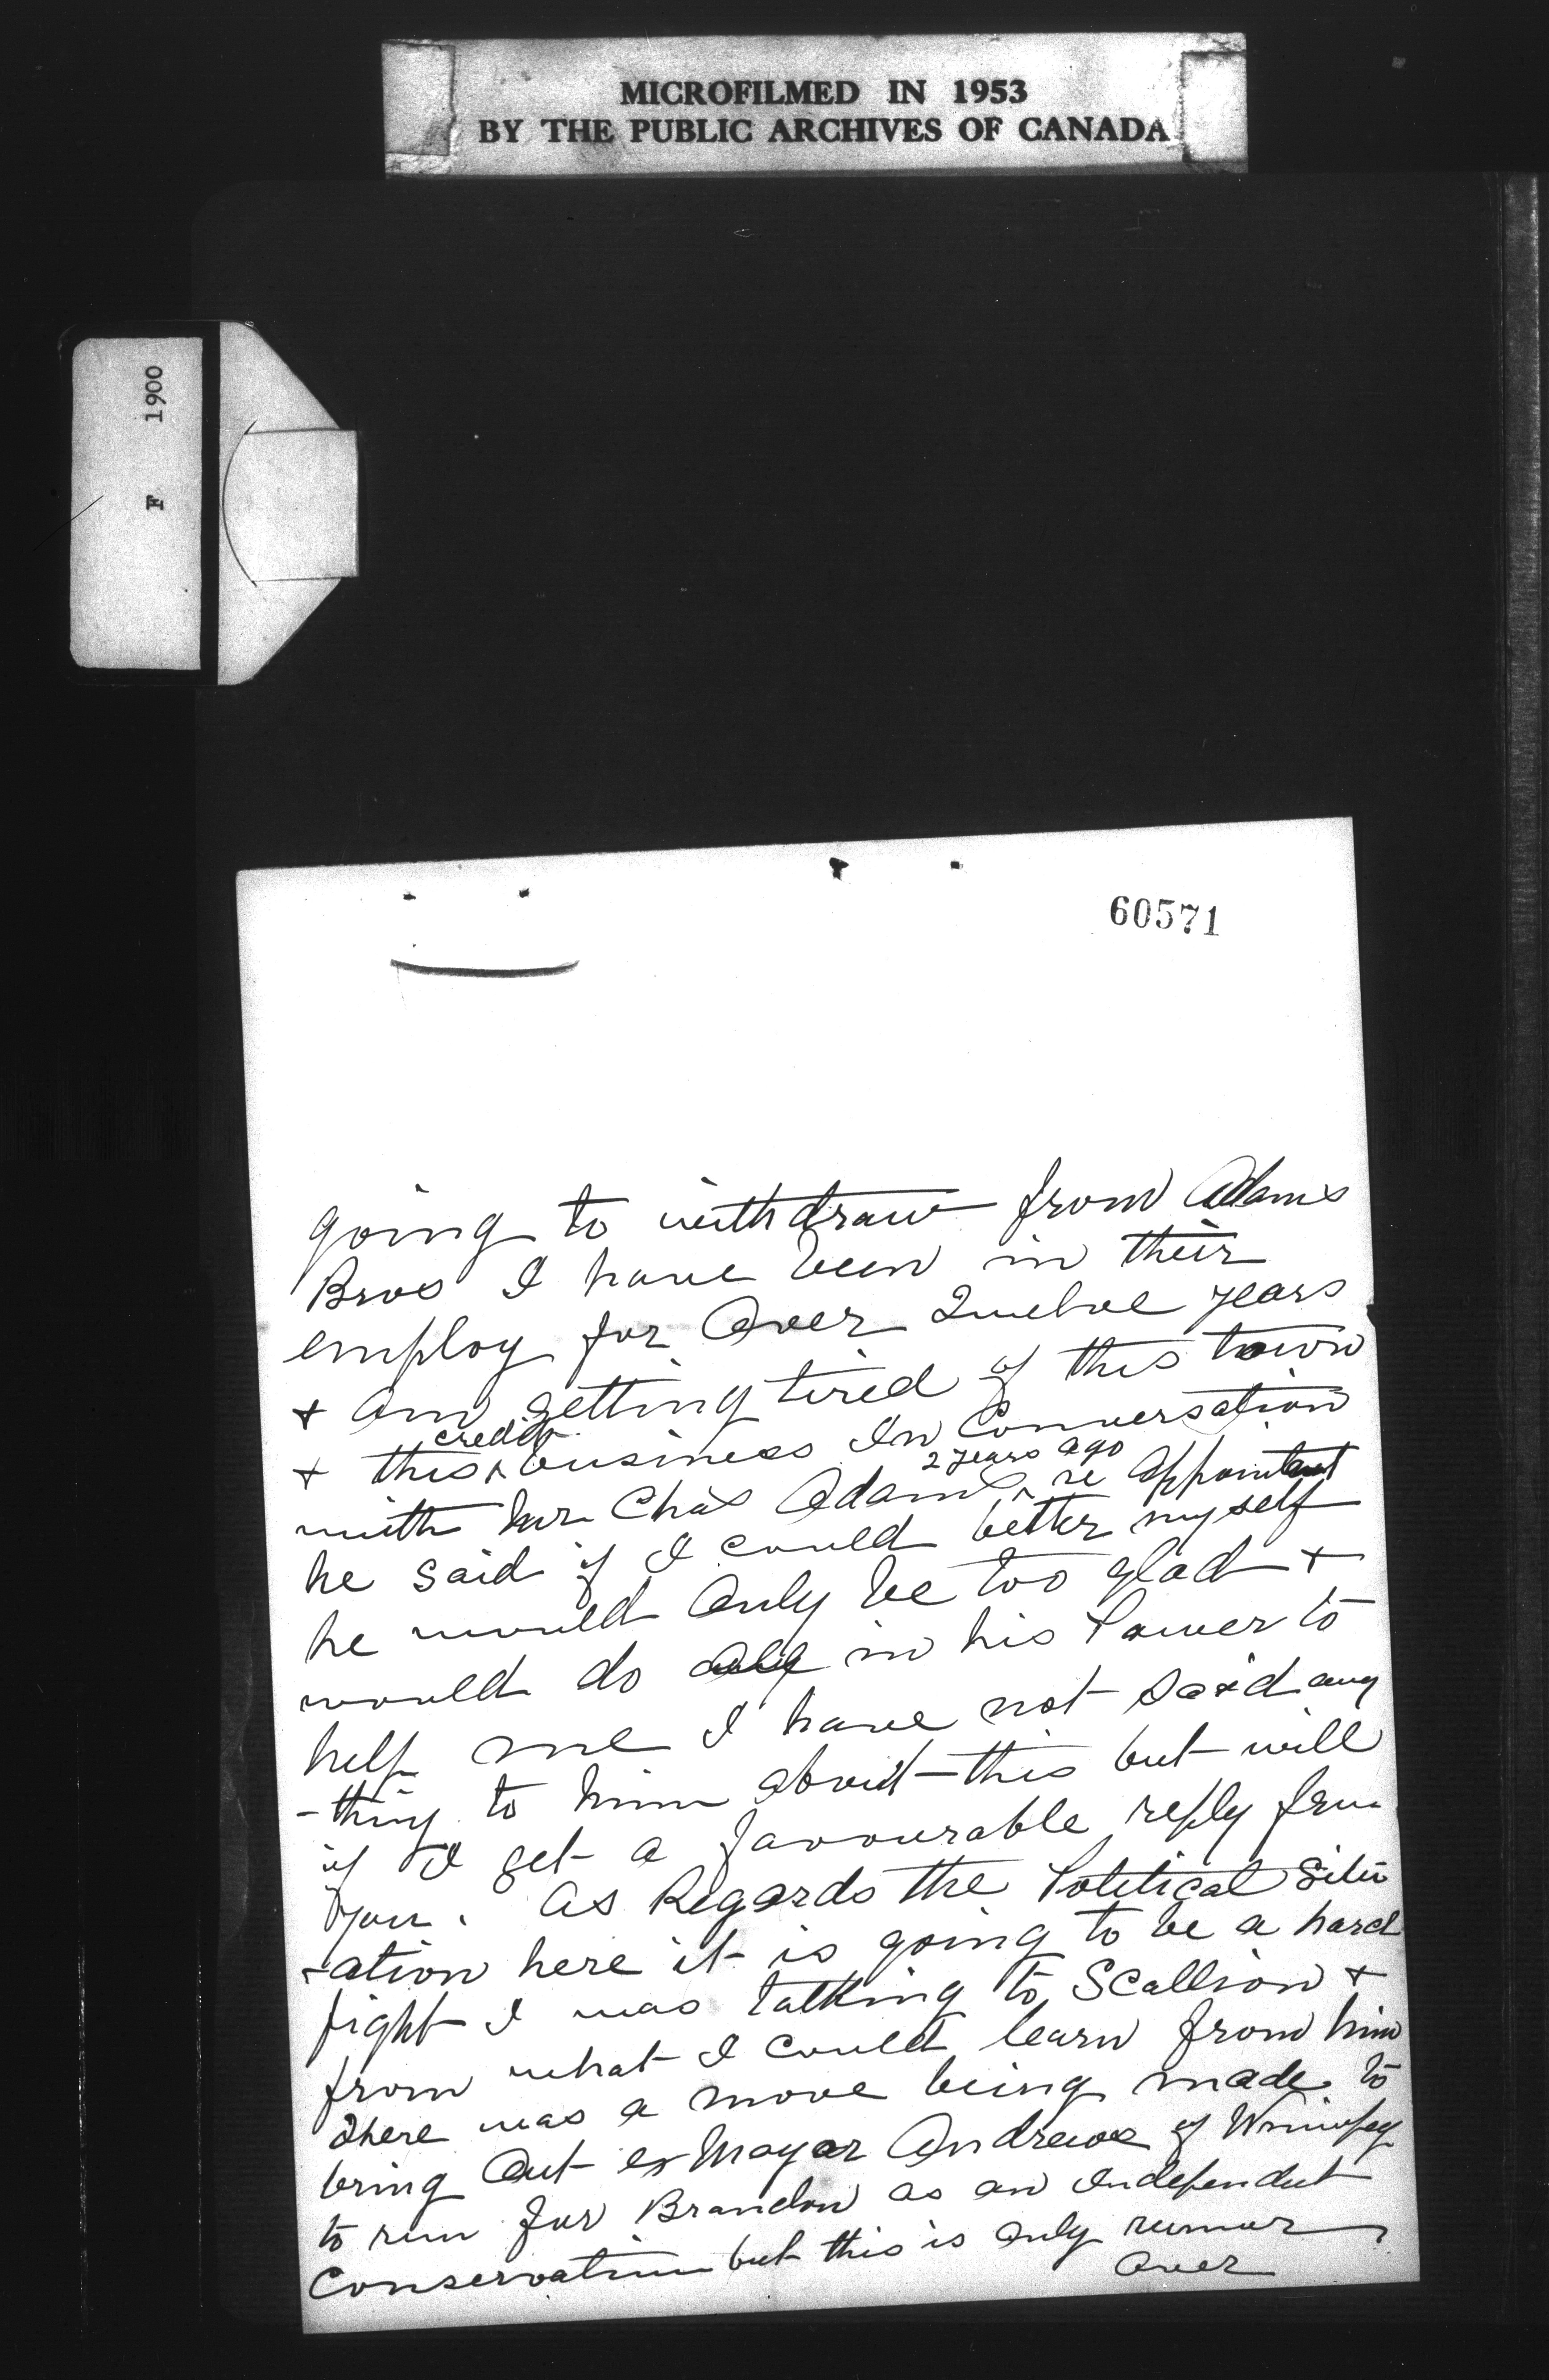 MICROFILMED IN 1953
BY THE PUBLIC ARCHIVES OF CANADA
F 1900
60571
going to withdraw from Adams
Bros I have been in their
employ for Over Twelve years
+ am getting tired of this town
+ this credit business In Conversation
with Mr Chas Adams 2 years ago re appointent
he said if I could better myself
he would Only be too glad +
would do all in his Power to
help me I have not said any
-thing to him about this but will
if I get a favourable reply from
you. As Regards the Political Situ
-ation here it is going to be a hard
fight I was talking to Scallion +
from what I could learn from him
there was a move being made to
bring Out ex Mayor Andrews of Winnipeg
to run for Brandon as an Independent
Conservative but this is only rumor
Over